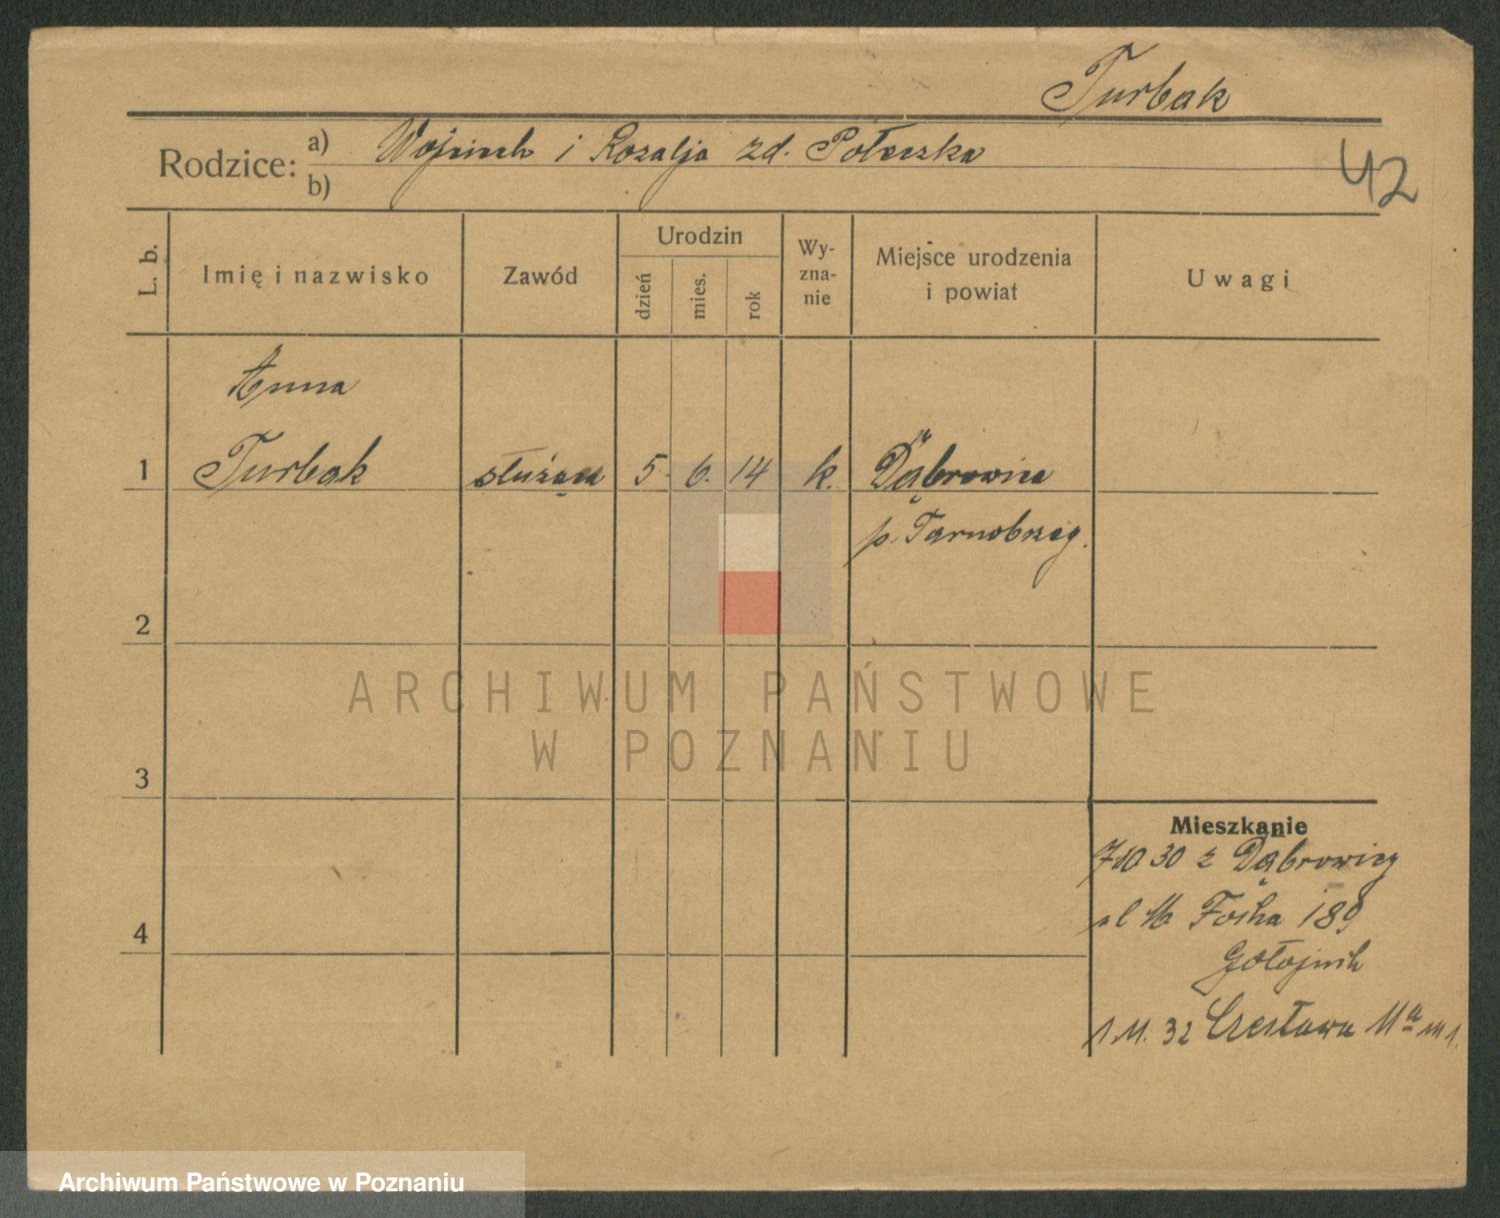 Turbak
Rodzice: a) Wojciech i Rozalja zd. Półeczka
b)
42
L. b.
Imię i nazwisko
Zawód
Urodzin
dzień
mies.
rok
Wy-
zna-
nie
Miejsce urodzenia
i powiat
Uwagi
Anna
1 Turbak służąca 5. 6. 14 k. Dąbrowica
p. Tarnobrzeg.
2
3
4
Mieszkanie
7 10 30 z Dąbrowicy
Focha 189
Gołojuch
1 11. 32 Czesława 11a m 1.
ARCHIWUM PAŃSTWOWE
W POZNANIU
Archiwum Państwowe w Poznaniu